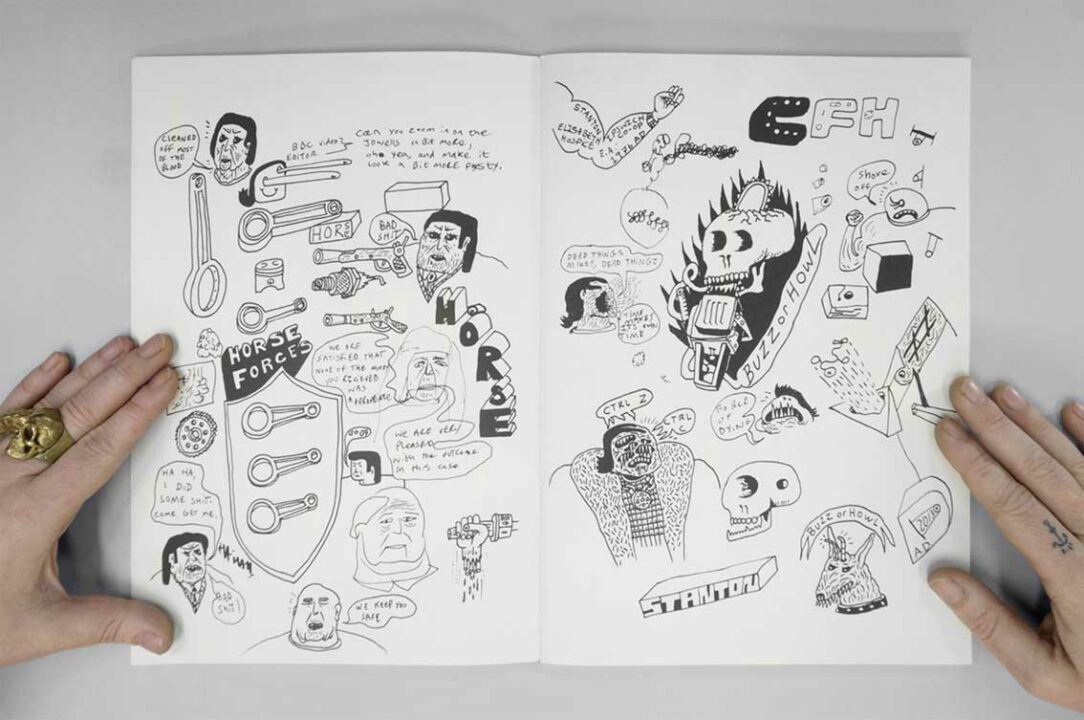 CLEANED
OFF MOST
OF THE
BLOOD
BBC video?
EDITOR
Can you zoom in on the
Jowells a bit more,
oho yea, and make it
look a bit more pasty.
HORSE
BAD
SHIT
HORSE
HORSE
FORCES
WE ARE
SATISFIED THAT
NONE OF THE MONEY
YOU RECIEVED
WAS
WE ARE VERY
PLEASED
with the outcome
in this case
HA HA,
I DID
SOME SHIT.
COME GET ME.
BAD
SHIT!
WE KEEP YOU
SAFE
STANTON
ELIZABETH
HOSPICE
IPSWICH
CO-OP
E.A.
AD
EFH
Shove
off
DEAD THINGS
MIKEY, DEAD THINGZ
TIME
BUZZ or HOWL
CTRL Z
CTRL
DYING
BUZZ or HOWL
2013©
AD
STANTON